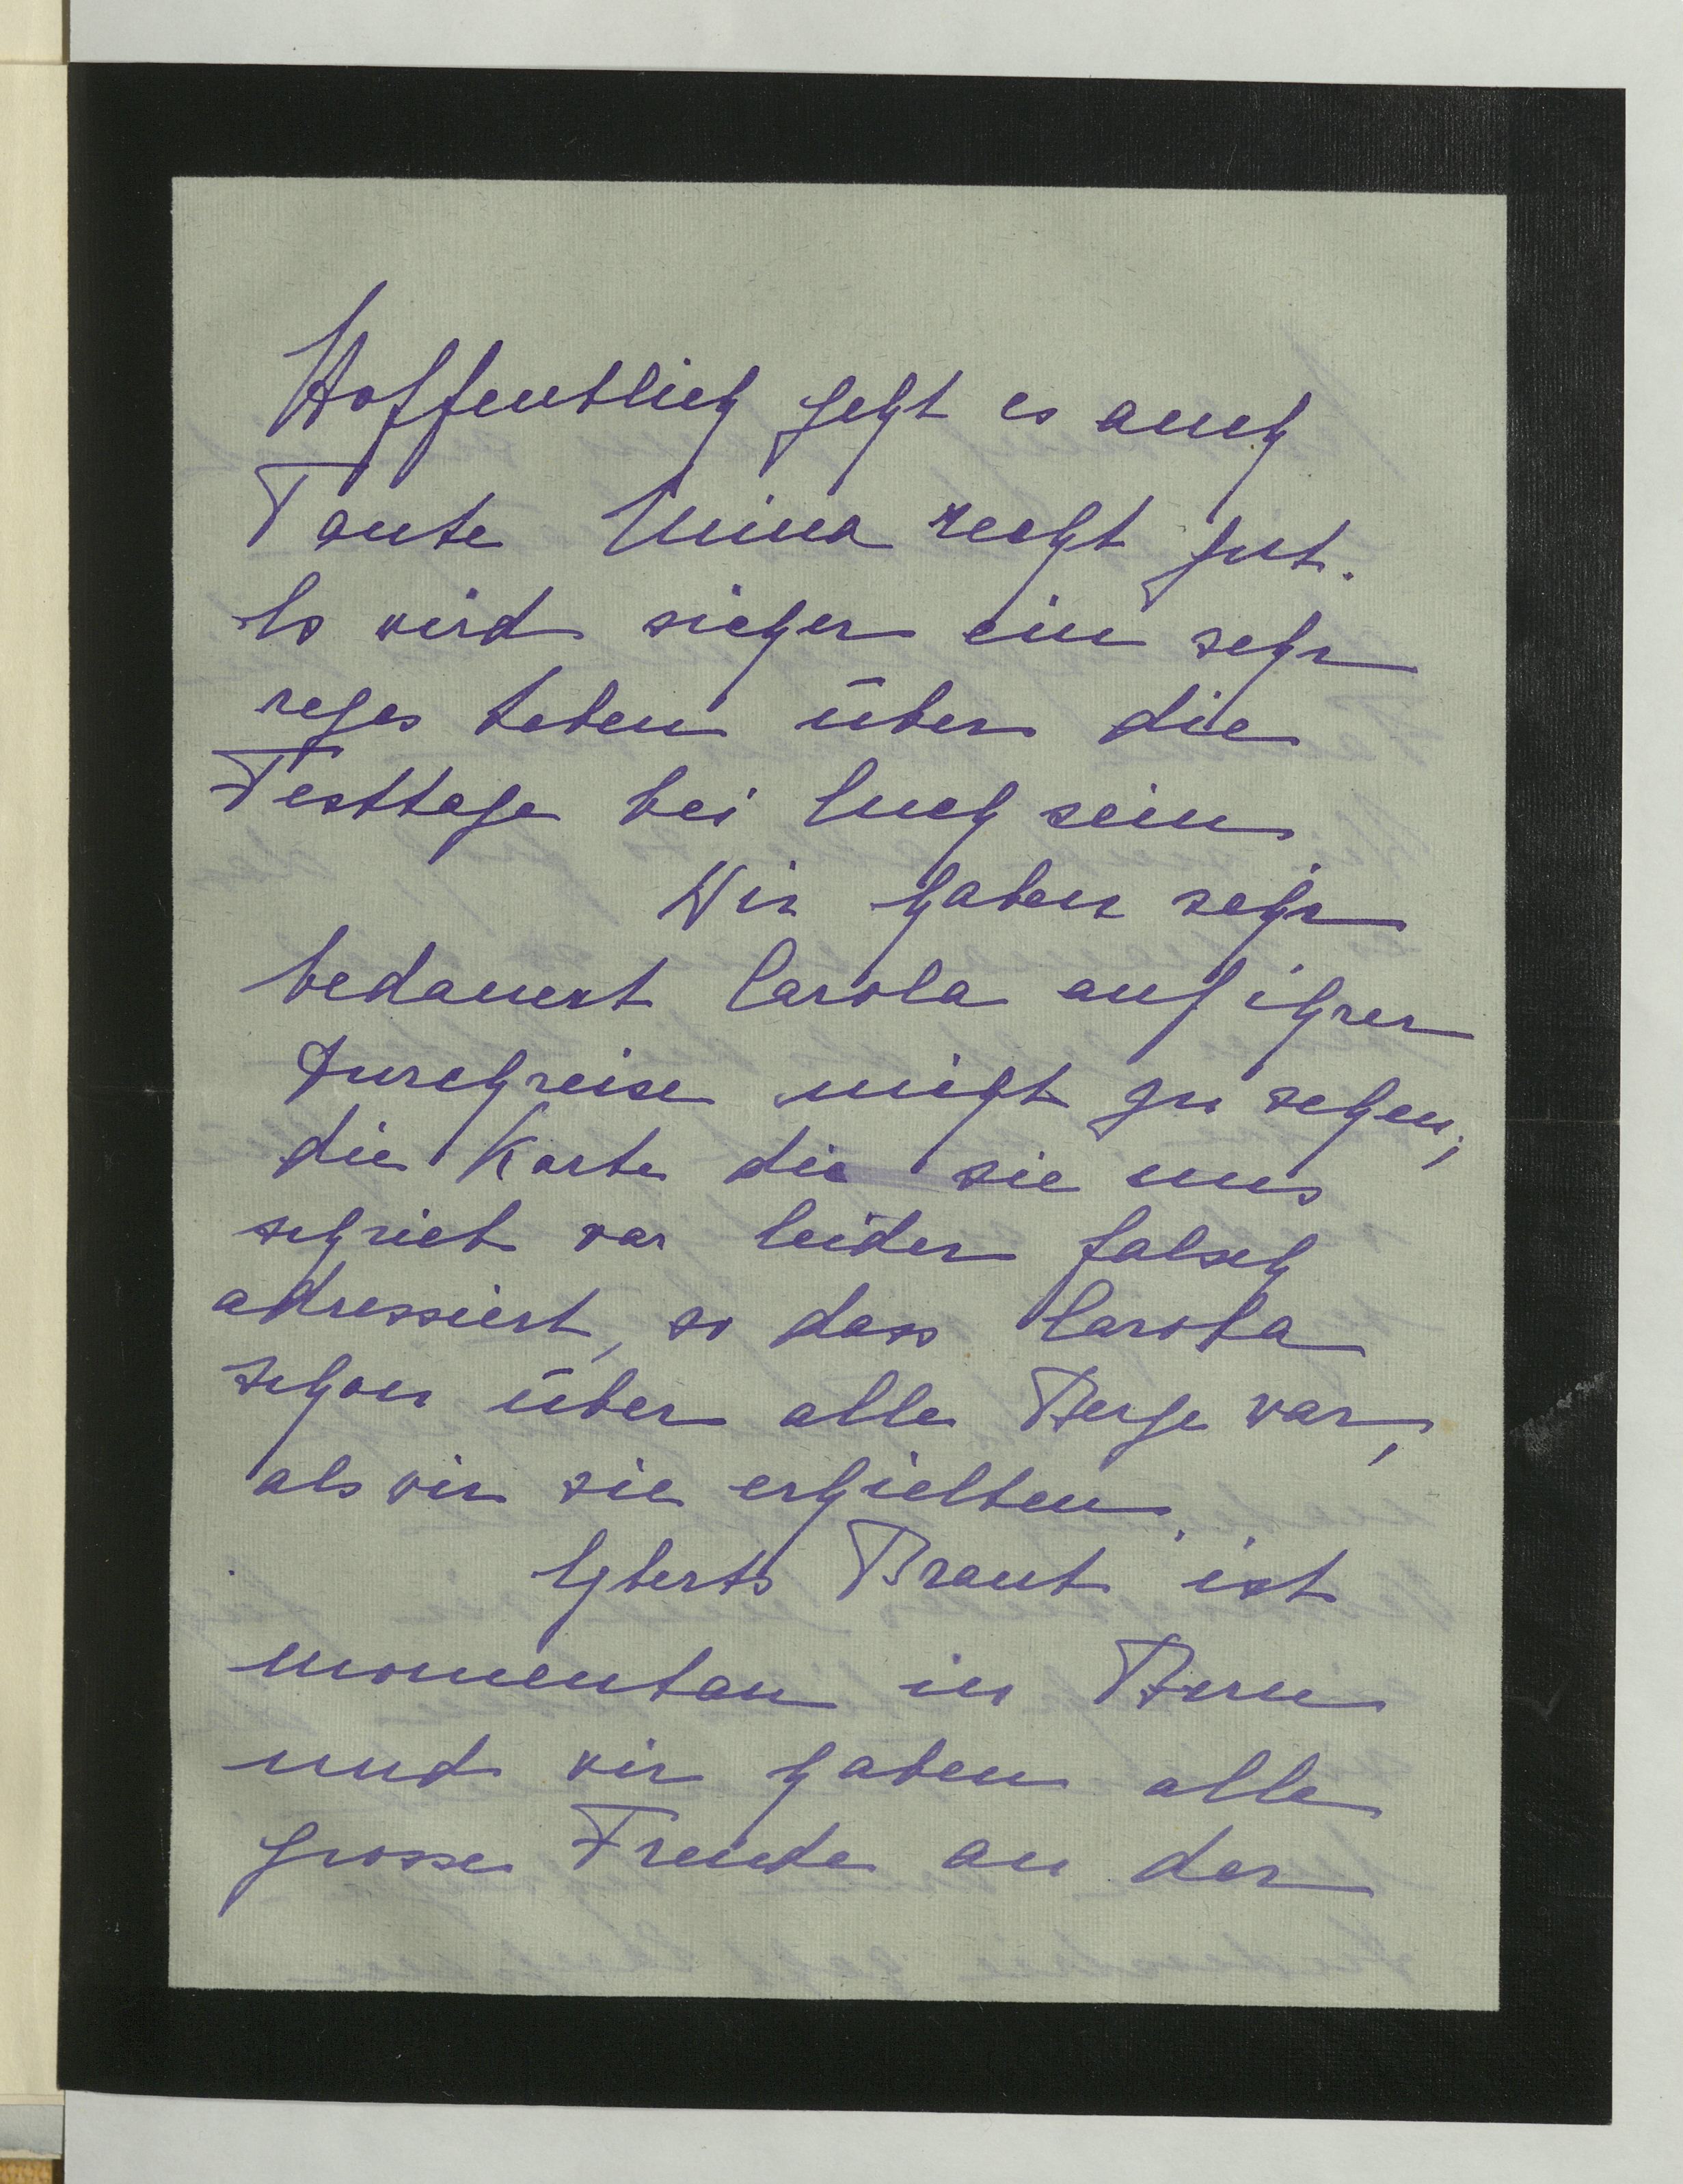 Hoffentlich geht es auch
Tante Mina recht gut.
Es wird sicher ein sehr
reges Leben über die
Festtage bei Euch sein.
Wir haben sehr
bedauert Carola auf ihrer
Durchreise nicht zu sehen;
die Karte die sie uns
schrieb war leider falsch
adressiert, so dass Carola
schon über alle Berge war,
als wir sie erhielten.
Egberts Braut ist
momentan in Bern
und wir haben alle
grosse Freude an der